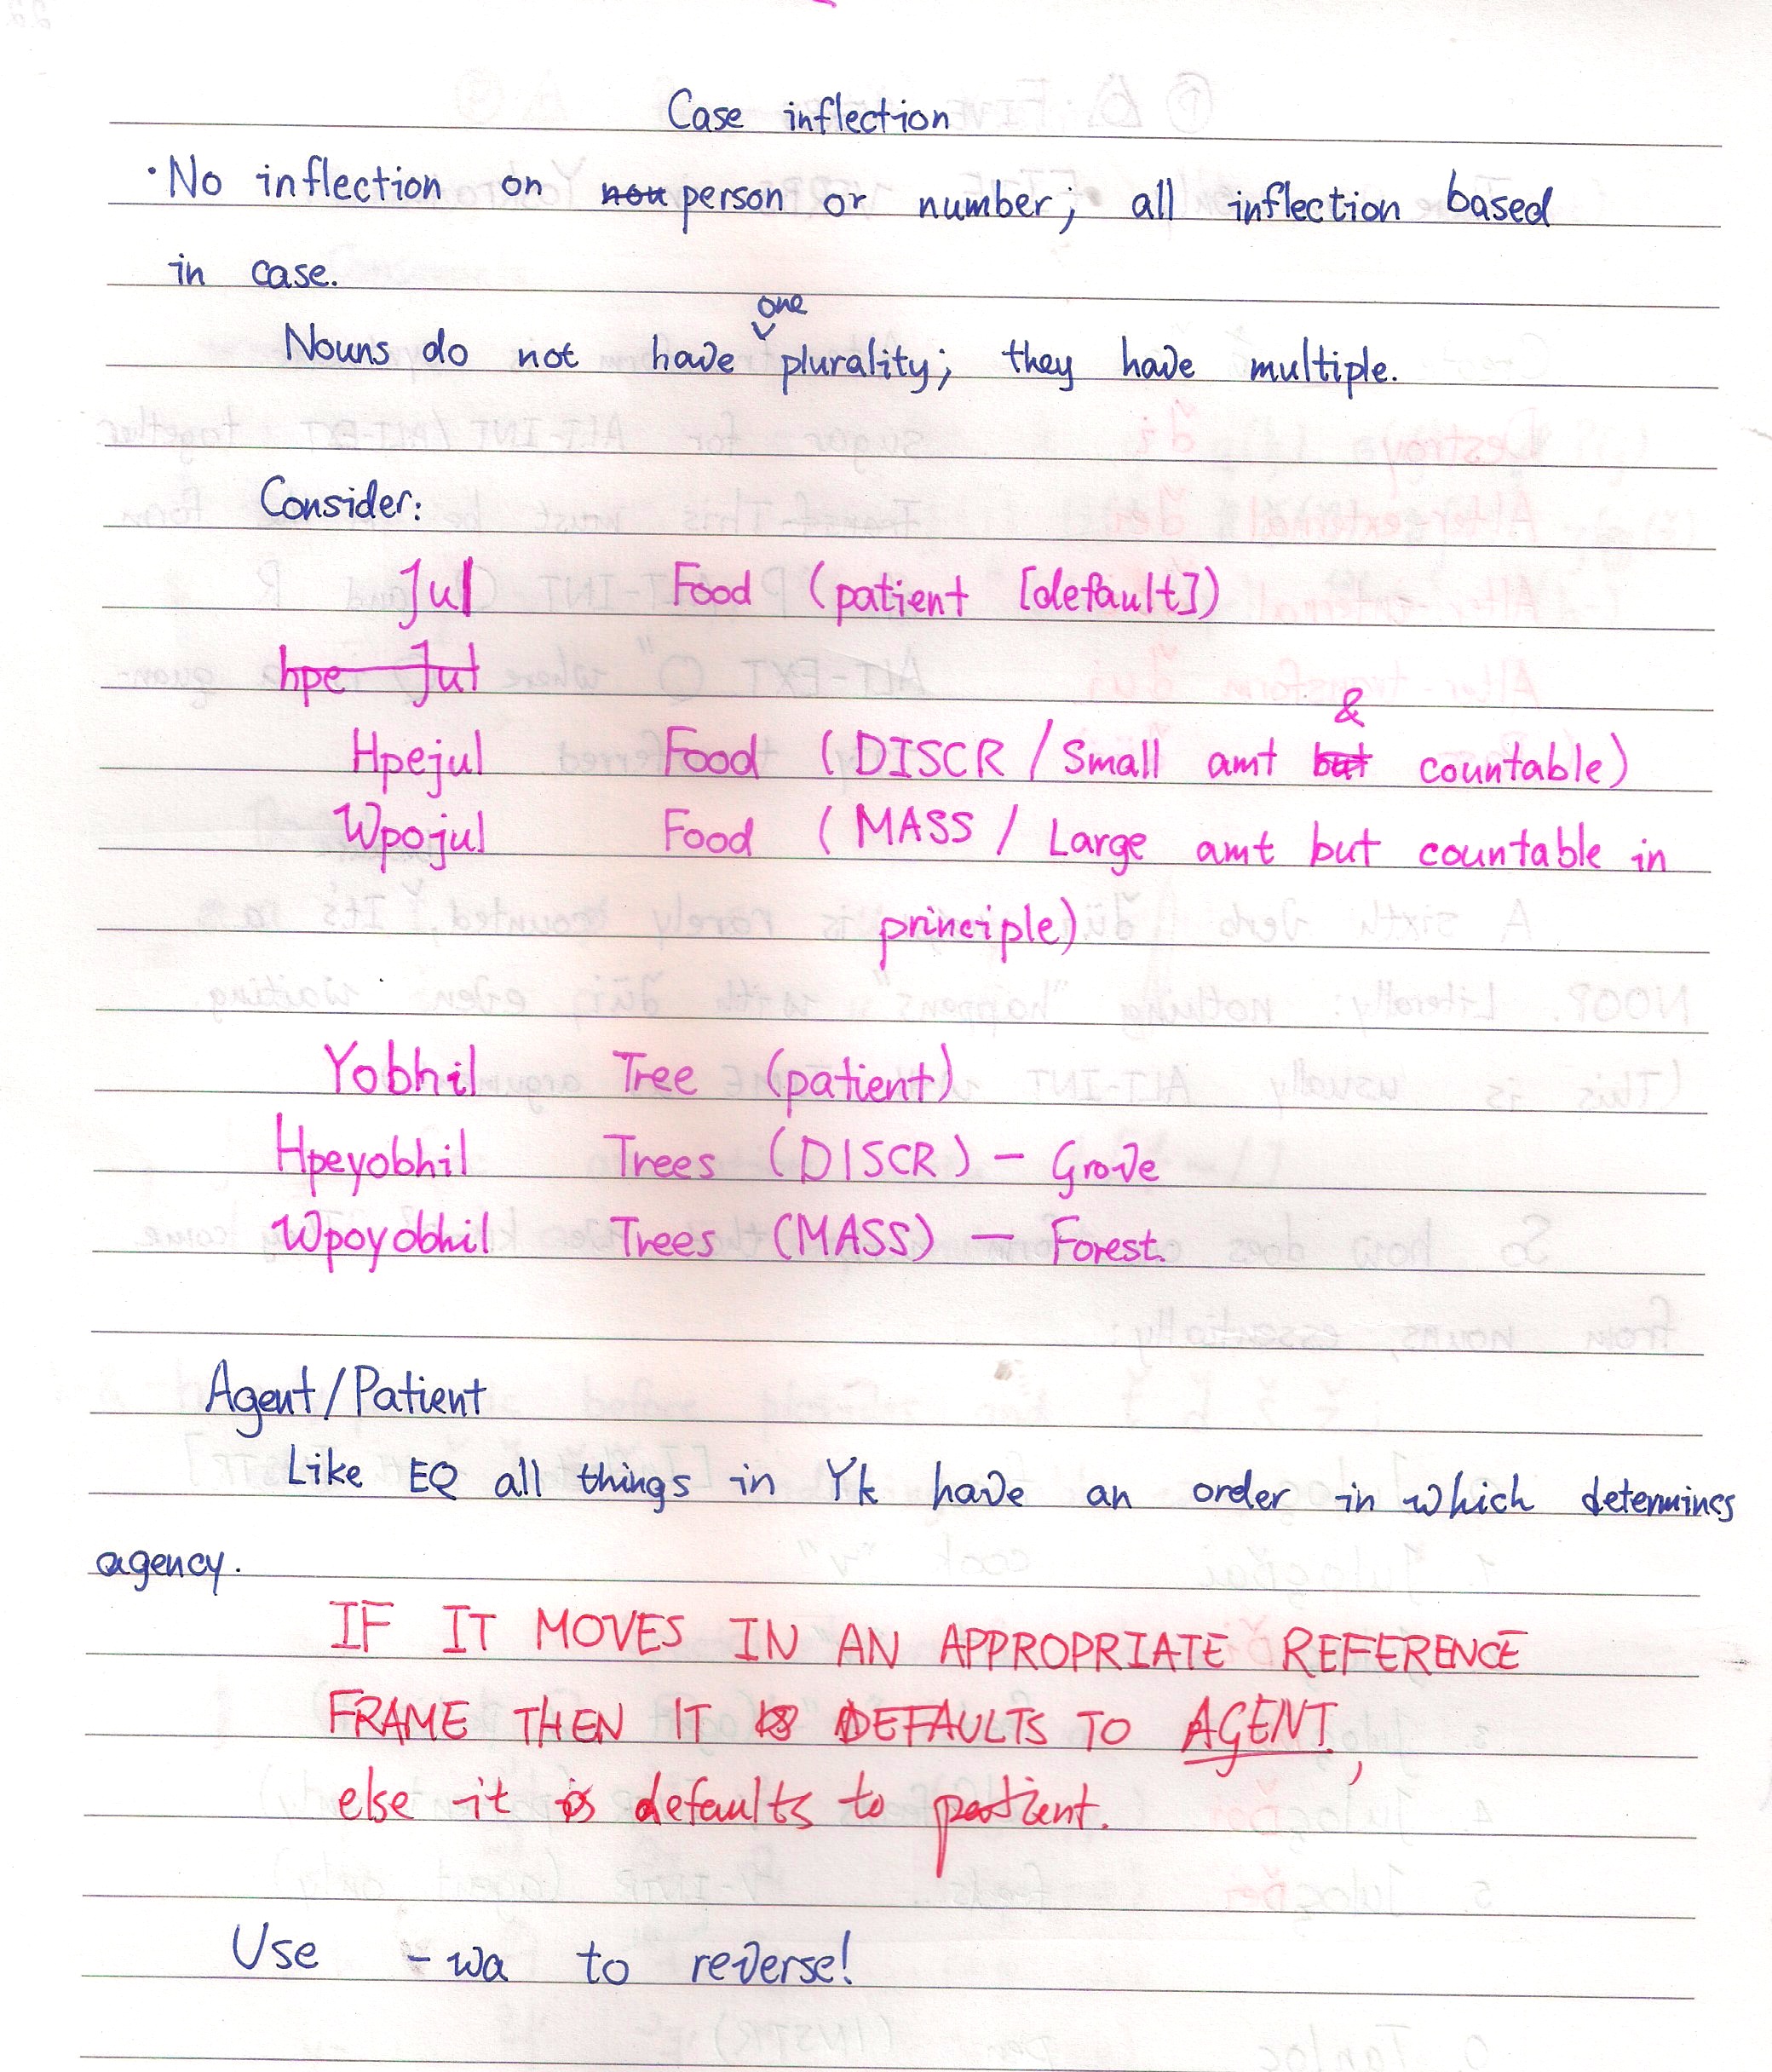 Case inflection
· No inflection on nou person or number; all inflection based
in case.
one
Nouns do not have plurality; they have multiple.
Consider:
Jul Food (patient [default])
hpe Jul
&
Hpejul Food (DISCR / Small amt but countable)
Wpojul Food (MASS / Large amt but countable in
principle)
Yobhil Tree (patient)
Hpeyobhil Trees (DISCR) – Grove
Wpoyobhil Trees (MASS) – Forest.
Agent/Patient
Like EQ all things in Yk have an order in which determines
agency.
IF IT MOVES IN AN APPROPRIATE REFERENCE
FRAME THEN IT IS DEFAULTS TO AGENT,
else it is defaults to patient.
Use -wa to reverse!